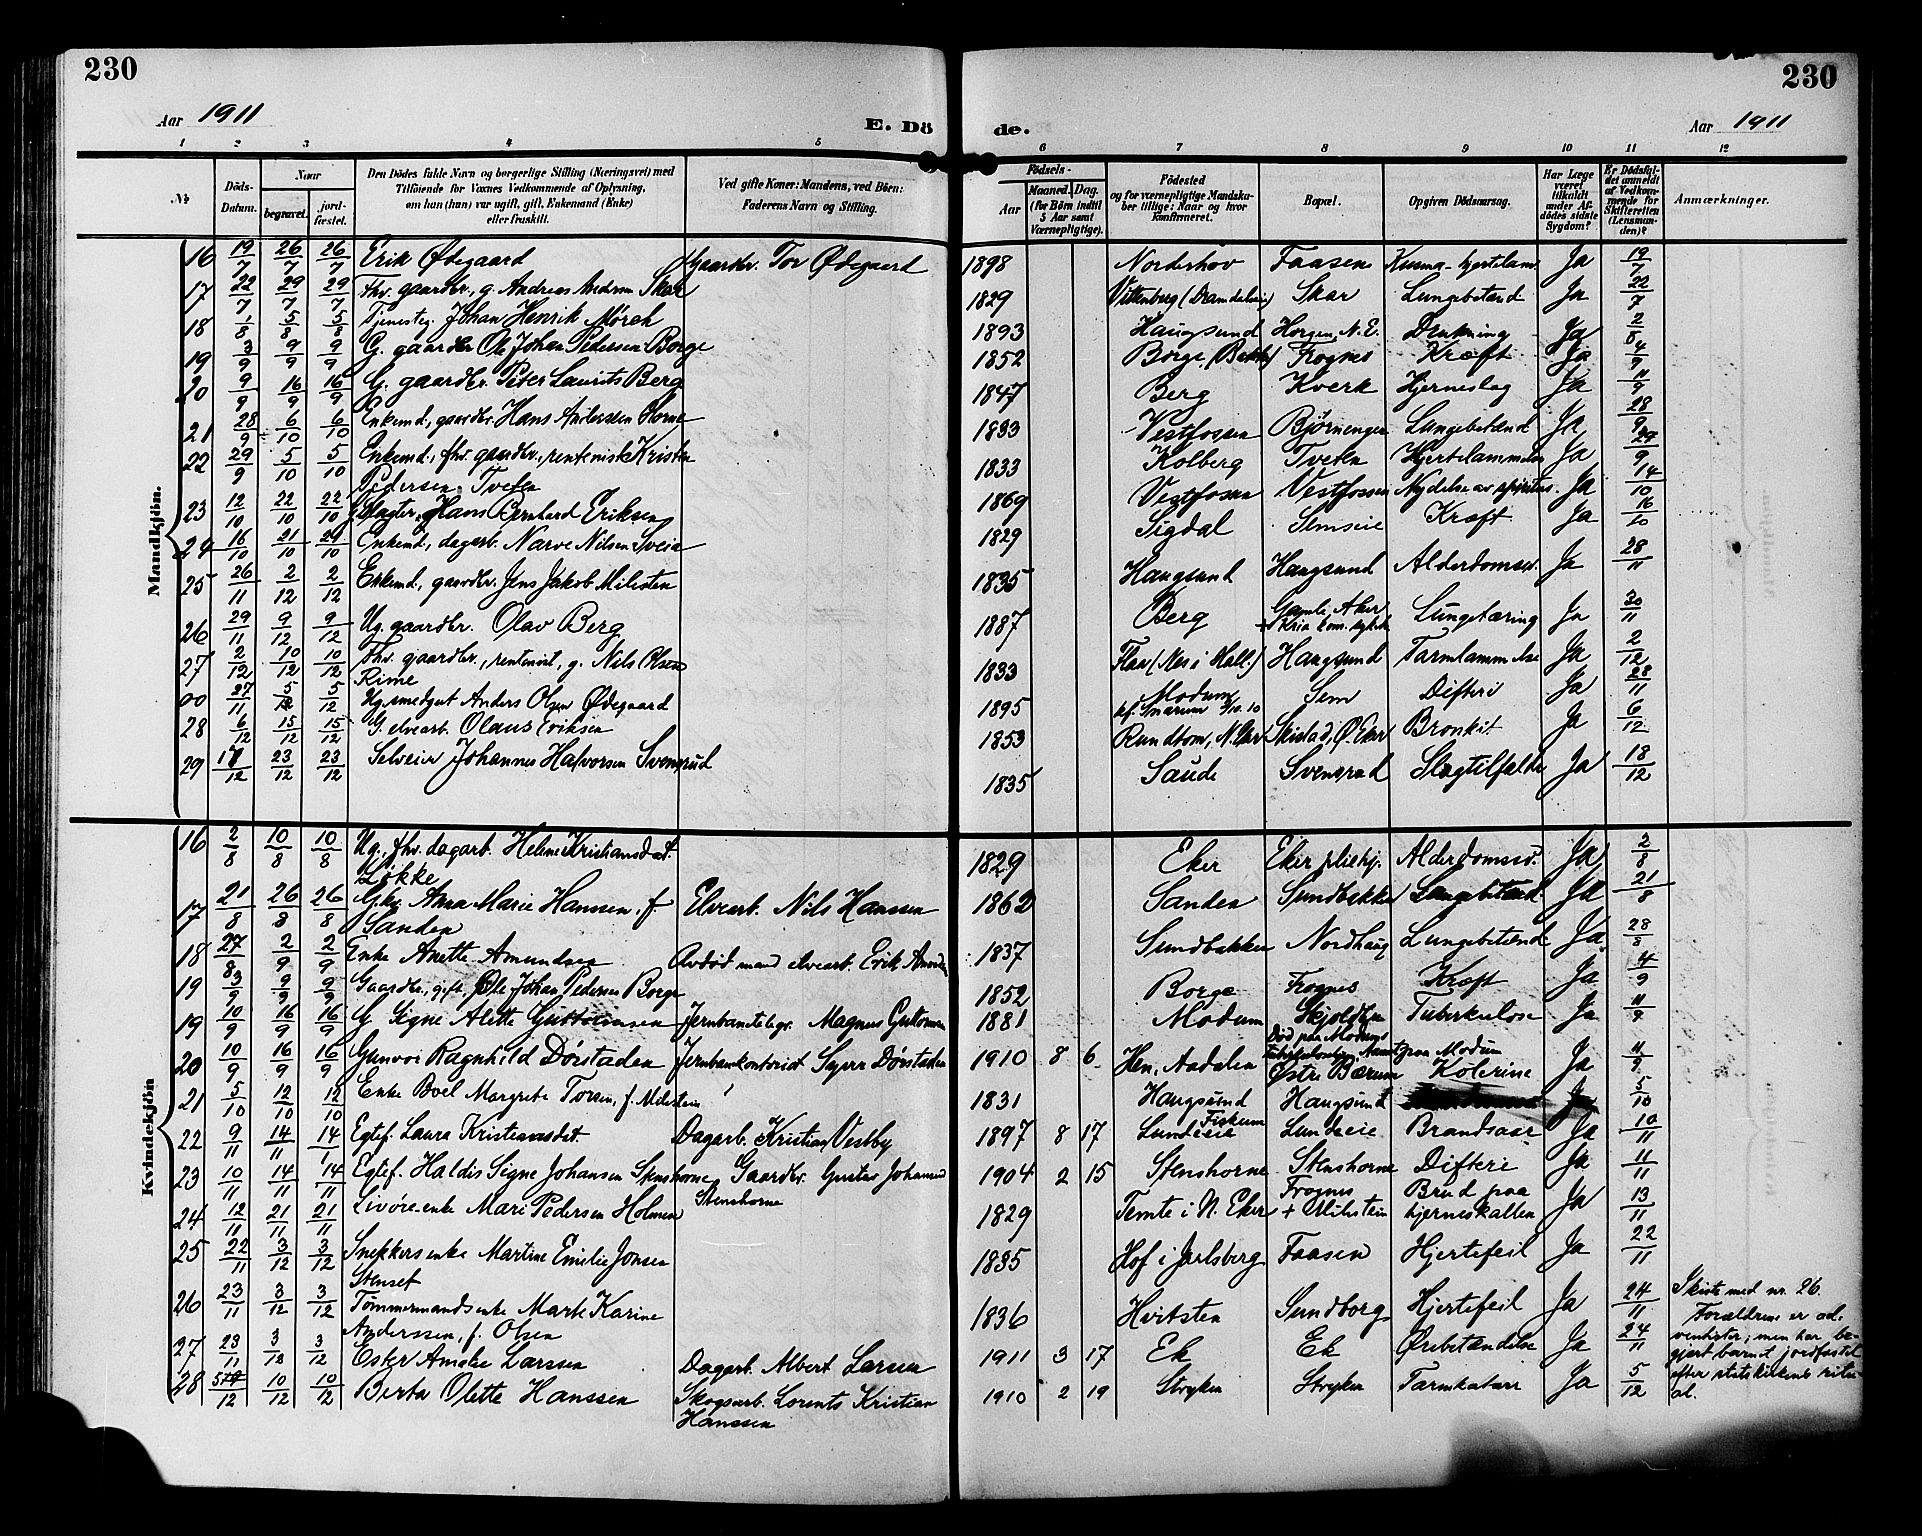 230
230
Aar 1911
E. Dö de.
Aar 1911
1 2 3 4 5 6 7 8 9 10 11 12
№ Döds-Datum. Naar begravet. jord-fæstet. Den Dödes fulde Navn og borgerlige Stilling (Næringsvei) med Tilföiende for Voxnes Vedkommende af Oplysning, om han (hun) var ugift, gift, Enkemand (Enke) eller fraskilt. Ved gifte Koner: Mandens, ved Börn: Faderens Navn og Stilling. Födsels- Aar Maaned. Dag. (for Börn indtil 5 Aar samt Værnepligtige). Födested og for værnepligtige Mandskaber tillige: Naar og hvor konfirmeret. Bopæl. Opgiven Dödsaarsag. Har Læge været tilkaldt under Afdödes sidste Sygdom? Er Dödsfaldet anmeldt af Vedkommende for Skifteretten (Lensmanden)? Anmærkninger.
Mandkjön.
16 19/7 26/7 26/7 Erik Ødegaard Gaardbr. Tor Ødegaard 1898 Norderhov Faasen Ja 19/7
17 22/7 29/7 29/7 Fhv. gaardbr., g. Andreas Skar 1829 Skar Lungebetænd Ja 22/7
18 1/8 5/8 5/8 Tjenesteg. Johan Henrik Mørch 1893 Haugsund Horgen, N. E. Drukning Ja
19 3/9 9/9 9/9 G. gaardbr Ole Johan Pedersen Borge 1852 Borge Frognes Kræft Ja 4/9
20 9/9 16/9 16/9 G. gaardbr. Peter Laurits Berg 1847 Berg Kverk Hjerneslag Ja 11/9
21 28/9 6/10 6/10 Enkemd, gaardbr. Hans Anderssen Horne 1833 Vestfossen Bjørnengen Lungebetænd Ja 28/9
22 29/9 5/10 5/10 Enkemd., fhv. gaardbr., rentenist Kristen 1833 Kolberg Tveten Hjertelammelse Ja 29/9
Pedersen Tveten
23 12/10 22/10 22/10 Slagter, Hans Bernhard Eriksen 1869 Vestfossen Vestfossen Nydelse av spiritus Ja 14/10
24 16/10 21/10 29/10 Enkemd, dagarb. Narve Nilsen Sveia 1829 Sigdal Semseie Kræft Ja 16/10
25 26/11 2/12 2/12 Enkemd, gaardbr. Jens Jakob Milesten 1835 Haugsund Haugsund Alderdomssv. Ja 28/11
26 29/11 9/12 9/12 Ug. gaardbr. Olav Berg 1887 Berg Gamle Aker Lungetæring Ja 30/11
27 2/12 10/12 10/12 Fhv. gaardbr., rentenist, g. Nils Olsen 1833 Flaa (Nes i Hall.) Haugsund Tarmlammelse Ja 2/12
Rime
00 27/11 5/12 5/12 Ug. smedgut Anders Olsen Ødegaard 1895 Modum kf. Snarum Sem Difteri Ja 28/11
28 6/12 15/12 15/12 G. elvearb. Olaus Eriksen 1853 Rundtom, N. Eker Skistad, Ø. Eker Bronkit Ja 6/12
29 17/12 23/12 23/12 Selveier Johannes Halvorsen Svensrud 1835 Saude Svensrud Slagtilfælde Ja 18/12
Kvindekjön
16 2/8 10/8 10/8 Ug., fhv. dagarb. Helene Kristiansdat. 1829 Eker Eker pleiehj. Alderdomssv. Ja 2/8
Løkke
17 21/8 26/8 26/8 Gkv. Anna Marie Hanssen, f. Elvearb. Nils Hanssen 1862 Sanden Sundbakken Lungebetænd. Ja 21/8
Sanden
18 27/8 2/9 2/9 Enke Anette Amundsen Avdød mand elvearb. Erik 1837 Sundbakken Nordhaug Lungebetænd Ja 28/8
19 3/9 9/9 9/9 Gaardbr., gift, Ole Johan Pedersen Borge 1852 Borge Frognes Kræft Ja 4/9
19 10/9 16/9 16/9 G Signe Alette Gustomsen Magnus 1881 Modum Tuberkulose Ja 11/9
Død paa Modums
20 10/9 16/9 16/9 Gunvor Ragnhild Dørstaden Jernbankontorist Dørstaden 1910 8 6 Hen, Aadalen Østre Bærum Kolerine Ja 11/9
21 5/10 12/10 12/10 Enke Boel Margrete Torsen, f. Milestein 1831 Haugsund Haugsund 5/10
22 9/11 14/11 14/ Egtef. Laura Kristiansdat. Dagarb. Kristian Vestby 1897 8 17 Lundeeie Fiskum Lundeeie Brandsaar Ja 10/11
23 10/11 14/11 14/11 Egtef. Haldis Signe Johansen Stenshorne Gaardbr. Gustav Johansen 1904 2 15 Stenshorne Stenshorne Difteri Ja 11/11
Stenshorne
24 12/11 21/11 21/11 enke Mari Pedersen Holmen 1829 Temte i N. Eker Frognes + Milestein Brud paa hjerneskallen Ja 13/11
25 22/11 3/12 3/12 Snekkersenke Martine Emilie Jonsen 1835 Hof i Jarlsberg Faasen Hjertefeil Ja 22/11
Stenset
26 23/11 3/12 3/12 Tømmermandsenke Marte Karine 1836 Hvitsten Sundborg Hjertefeil Ja 24/11 Skiste med nr. 26.
Anderssen, f. Olsen
27 23/11 3/12 3/12 Ester Amalie Larssen Dagarb. Albert Larsen 1911 3 17 Ek Ek Ørebetændelse Ja 24/11 Forældrene er adventister; men har begjært barnet jordfæstet efter statskirkens ritual.
28 5/12 10/12 10/12 Berta Olette Hanssen Skogsarb. Lorents Kristian 1910 2 19 Stryken Stryken Tarmkatarr Ja 5/12
Hanssen